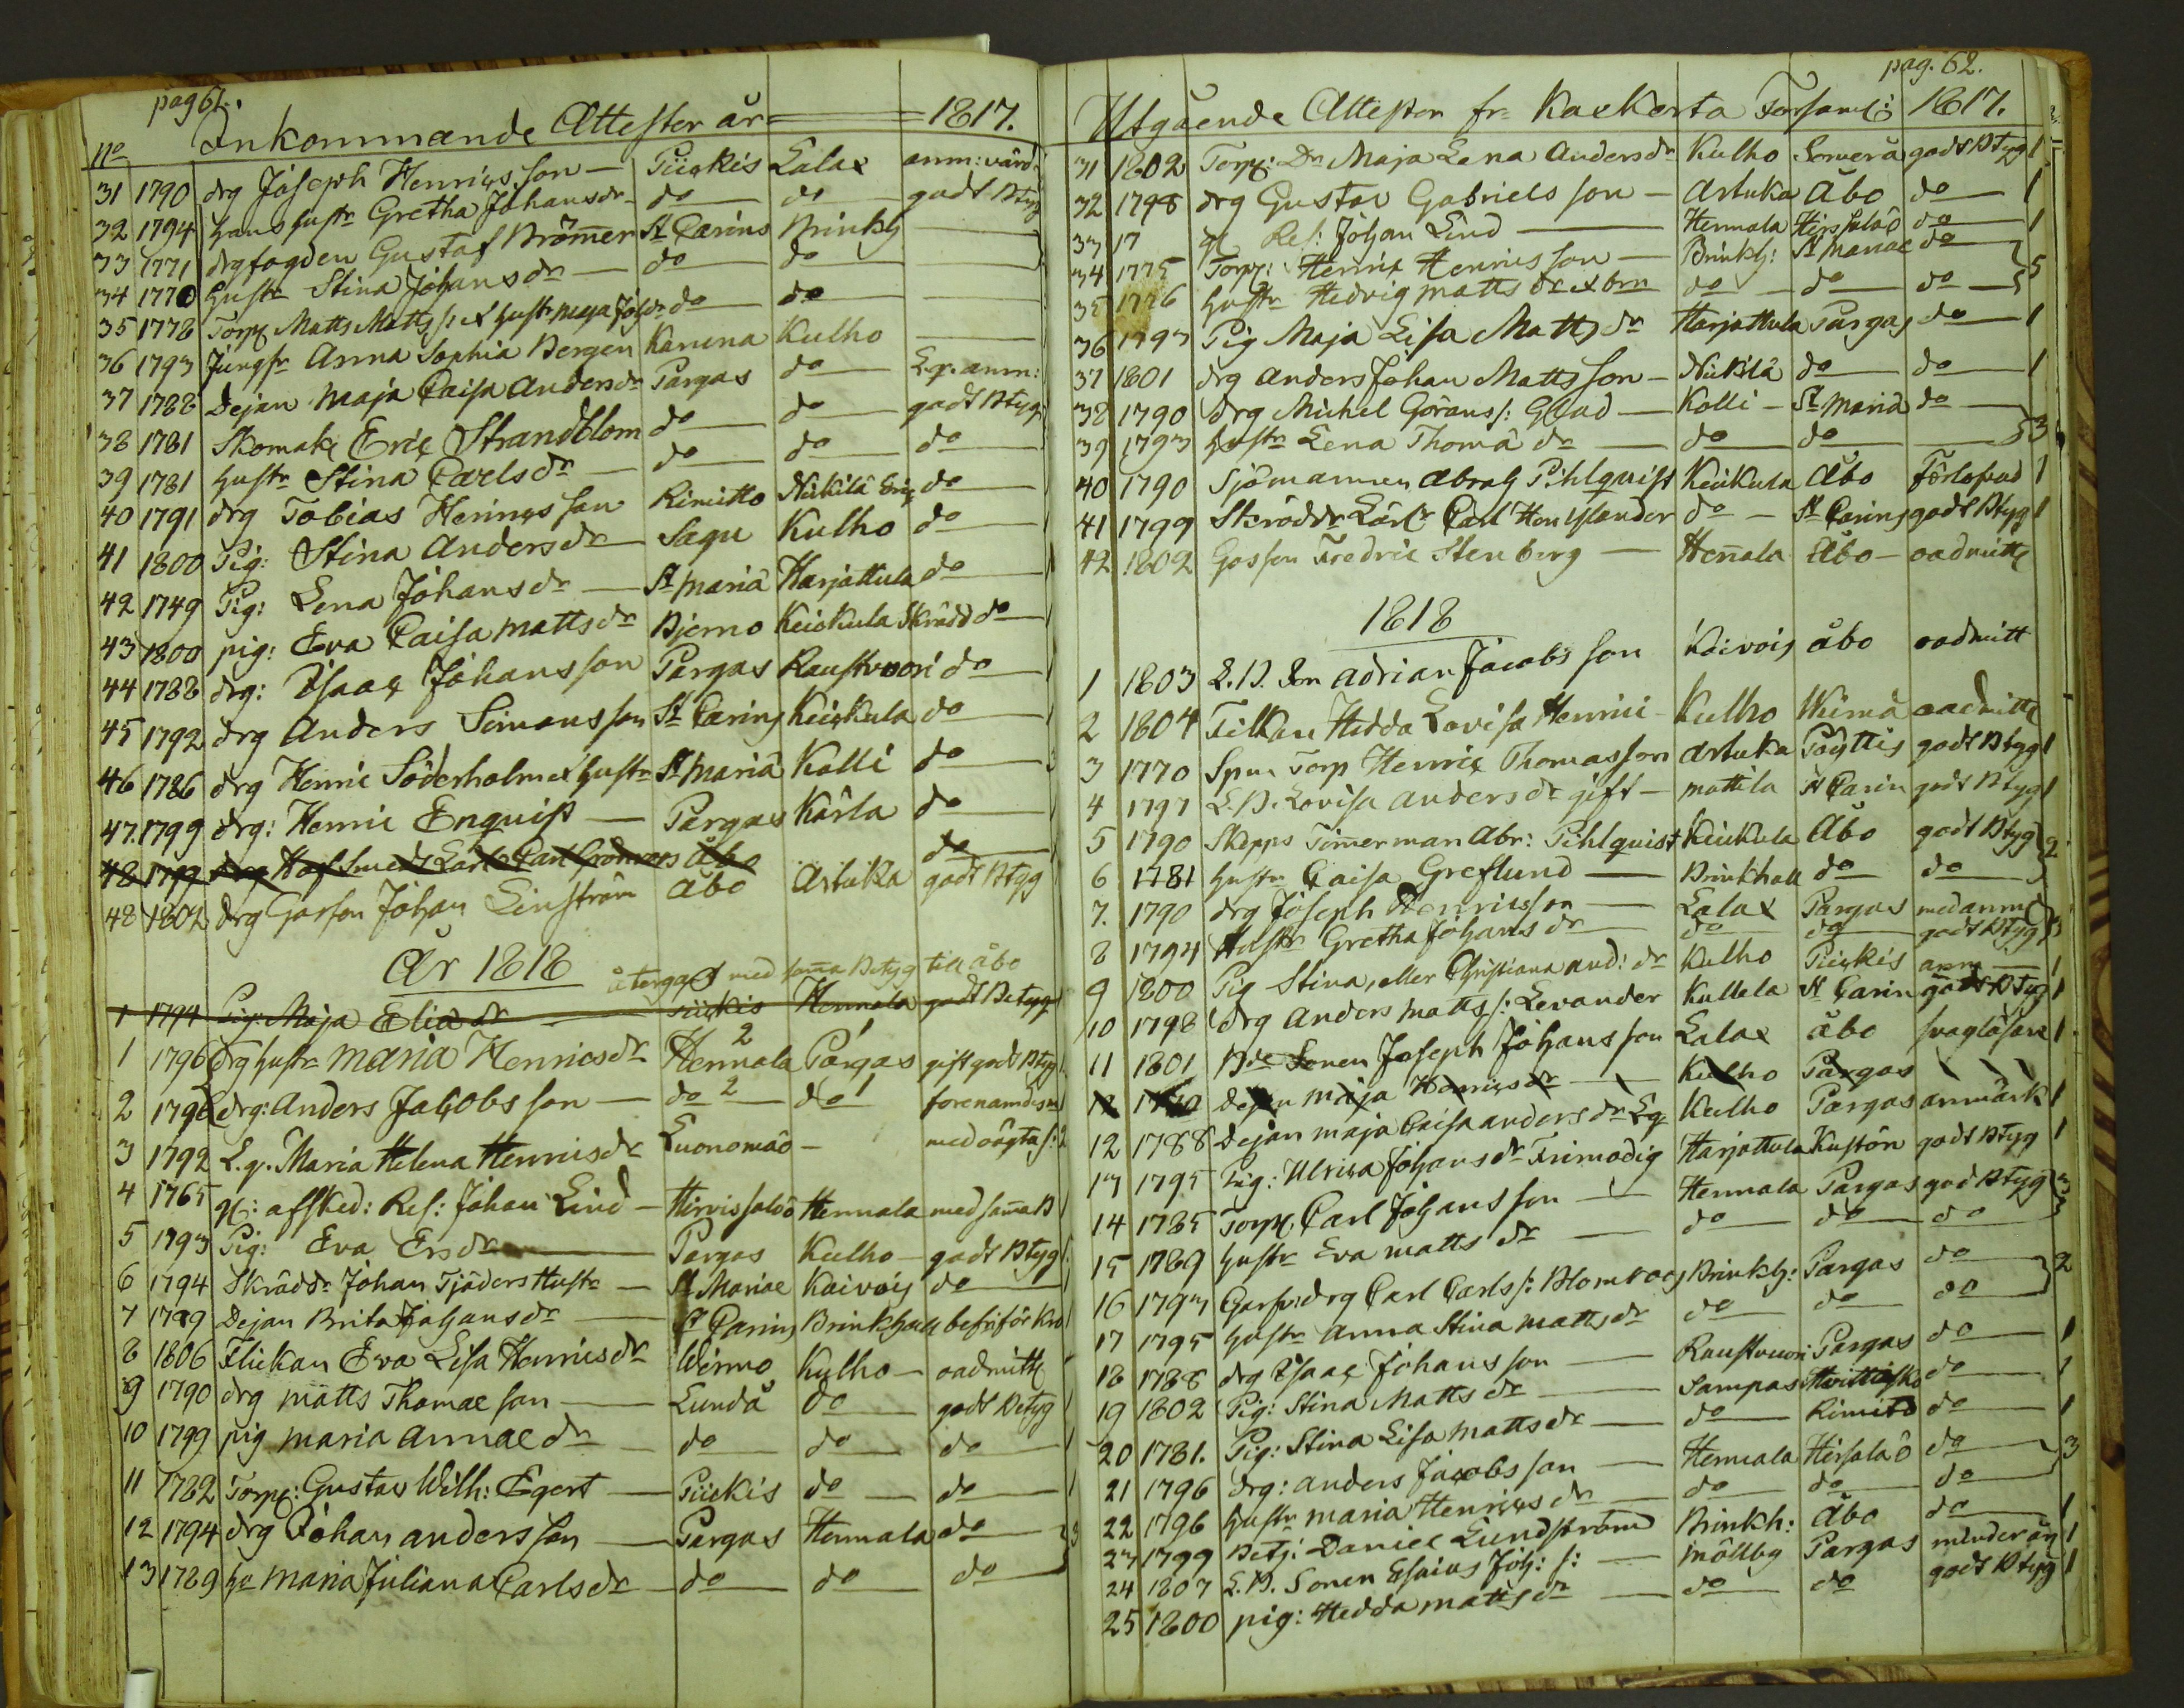 pag 61.
Inkommande Attester år 1817.
No
31 1790 drg Joseph Henricsson — Piickis Lalax anm: värd
32 1794 hans hustr Gretha Johansdr do do godt Btyg
33 1771 drgfogden Gustaf Brömer St Carins Brinkh
34 1770 hustr Stina Johansdr — do do
35 1778 Torp Matts Matts s: & hustr Maja Joh dr do do
36 1793 Jungfr Anna Sophia Bergen Karuna Kulho
37 1788 Dejan Maja Caisa Andersdr Pargas do L.q. anm:
38 1781 Skomak Eric Strandblom do do godt Btyg
39 1781 hustr Stina Carlsdr — do do do
40 1791 drg Tobias Henricsson Rimitto Nickilä Eric do
41 1800 Pig: Stina Andersdr Sagu Kulho do
42 1749 Pig: Lena Johansdr — St Mariä Harjattula do
43 1800 pig: Eva Caisa Mattsdr Bjerno Keickula Skrädd do
44 1788 drg: Isaac Johansson Pargas Raustvuori do
45 1792 drg Anders Simonsson St Carins Keickula do
46 1786 drg Henric Söderholm & hustr St Mariä Kolli do
47. 1799 drg: Henric Enquist — Pargas Kärla do
48 1799 drg Hofsmeds Lärl: Carl Åbo do
48 1802 drg Gosson Johan Linström Åbo Artuka godt Btyg
År 1818
återgått med samma Betyg till åbo
1 1794 Pig: Maja Elia dr Piickis Hennala godt Betyg
1 1796 drg hustr Maria Henricsdr Hennala 2 Pargas 1 gift godt Btyg
2 1796 drg: Anders Jacobsson — do 2 do 1
3 1792 L.q. Maria Helena Henricsdr Luonomäo — med oägta s:
4 1765 afsked: Ref: Johan Lind — Hirvissalo Hennala med sama B
5 1793 Pig: Eva Ersdr Pargas Kulho — godt Btyg
6 1794 Skrädd: Johan Tjäders Hustr — St Mariae Kaivois do
7 1789 Dejan Brita Johansdr St Carins Brinkhall
8 1806 Flickan Eva Lisa Henricsdr Wirmo Kulho — oadmitt
9 1790 drg Matts Thomae son Lundå do godt Betyg
10 1799 pig Maria Annae dr do do do
11 1782 Torp: Gustav Wilh: Egert — Piickis do do
12 1794 drg Johan Andersson — Pargas Hennala do
13 1789 hu Maria Juliana Carlsdr do do do 3
pag. 62.
Utgående Attester fr. Kaskerta Forsaml: 1817.
31 1802 Torp: Dr Maja Lena Andersdr Kulho Somerå godt Btyg 1
32 1798 drg Gustav Gabriels son — Artuka Åbo do 1
33 17 Ref: Johan Lind Hennala Hirssalo do 1
34 1775 Torp: Henric Henricsson — Brinkh: St Mariae do
35 1776 hustr Hedvig Mattsdr & brn do do do 5
36 1793 Pig Maja Lisa Matts dr Harjattula Pargas do 1
37 1801 drg Anders Johan Mattsson — Nickilä do do 1
38 1790 drg Michel Görans s: Glad — Kolli — St Mariä do
39 1793 hustr Lena Thomä dr do do 3
40 1790 Sjömannen Abrah Pihlquist Keickula Åbo Förlofvad 1
41 1799 Skrädd: Lärl: Carl Henr do — St Carins godt Btyg 1
42 1802 Gosson Fredric Stenberg — Hennala Åbo — oadmitt
1818
1 1803 L.B. Son Adrian Jacobsson Kaivois åbo oadmitt
2 1804 Flikan Hedda Lovisa Henrici Kulho Wirmå oadmitt
3 1770 Spm Torp Henric Thomasson Artuka Pöyttis godt Btyg 1
4 1797 L.B. Lovisa Andersdr gift — Mattila St Carin godt Btyg 1
5 1790 Skepps Timerman Abr: Pihlquist Keickula Åbo godt Btyg
6 1781 hustr Caisa Greflund — Brinkhall do do 2
7. 1790 drg Joseph Henricsson — Lalax Pargas med anm
8 1794 Hustr Gretha Johansdr do do godt Btyg 3
9 1800 Pig Stina, eller Christiana And: dr Kulho Piickis anm 1
10 1798 drg Anders Matts s: Levander Kullela St Carin godt Btyg 1
11 1801 Bde Sonen Joseph Johansson Lalax åbo 1
12 1740 Dejan Maja Henricsdr Kulho Pargas
12 1788 Dejan Maja Caisa Andersdr Lq Kulho Pargas anmärk 1
13 1795 Pig: Ulrica Johansdr Frimodig Harjattula Kustön godt Btyg 1
14 1785 Torp: Carl Johansson — Hennala Pargas god Btyg 3
15 1789 hustr Eva Mattsdr do do do
16 1793 drg Carl Carls s: Blomberg Brinkh: Pargas do 2
17 1795 hustr Anna Stina Mattsdr do do do
18 1788 drg Isaac Johansson — Raustvuori Pargas do 1
19 1802 Pig: Stina Mattsdr Sampas do 1
20 1781. Pig: Stina Lisa Mattsdr do Rimito do 1
21 1796 drg: Anders Jacobsson — Hennala Hirsalaö do 3
22 1796 hustr Maria Henricsdr do do do
23 1799 Betj: Daniel Lundström Brinkh: Åbo do 1
24 1807 L.B. Sonen Esaias Joh: s: — Möllby Pargas minderårig 1
25 1800 pig: Hedda Mattsdr do do godt Btyg 1